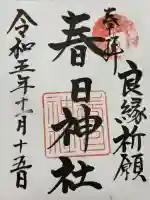 奉拝
良縁祈願
春日神社
令和五年十一月十五日